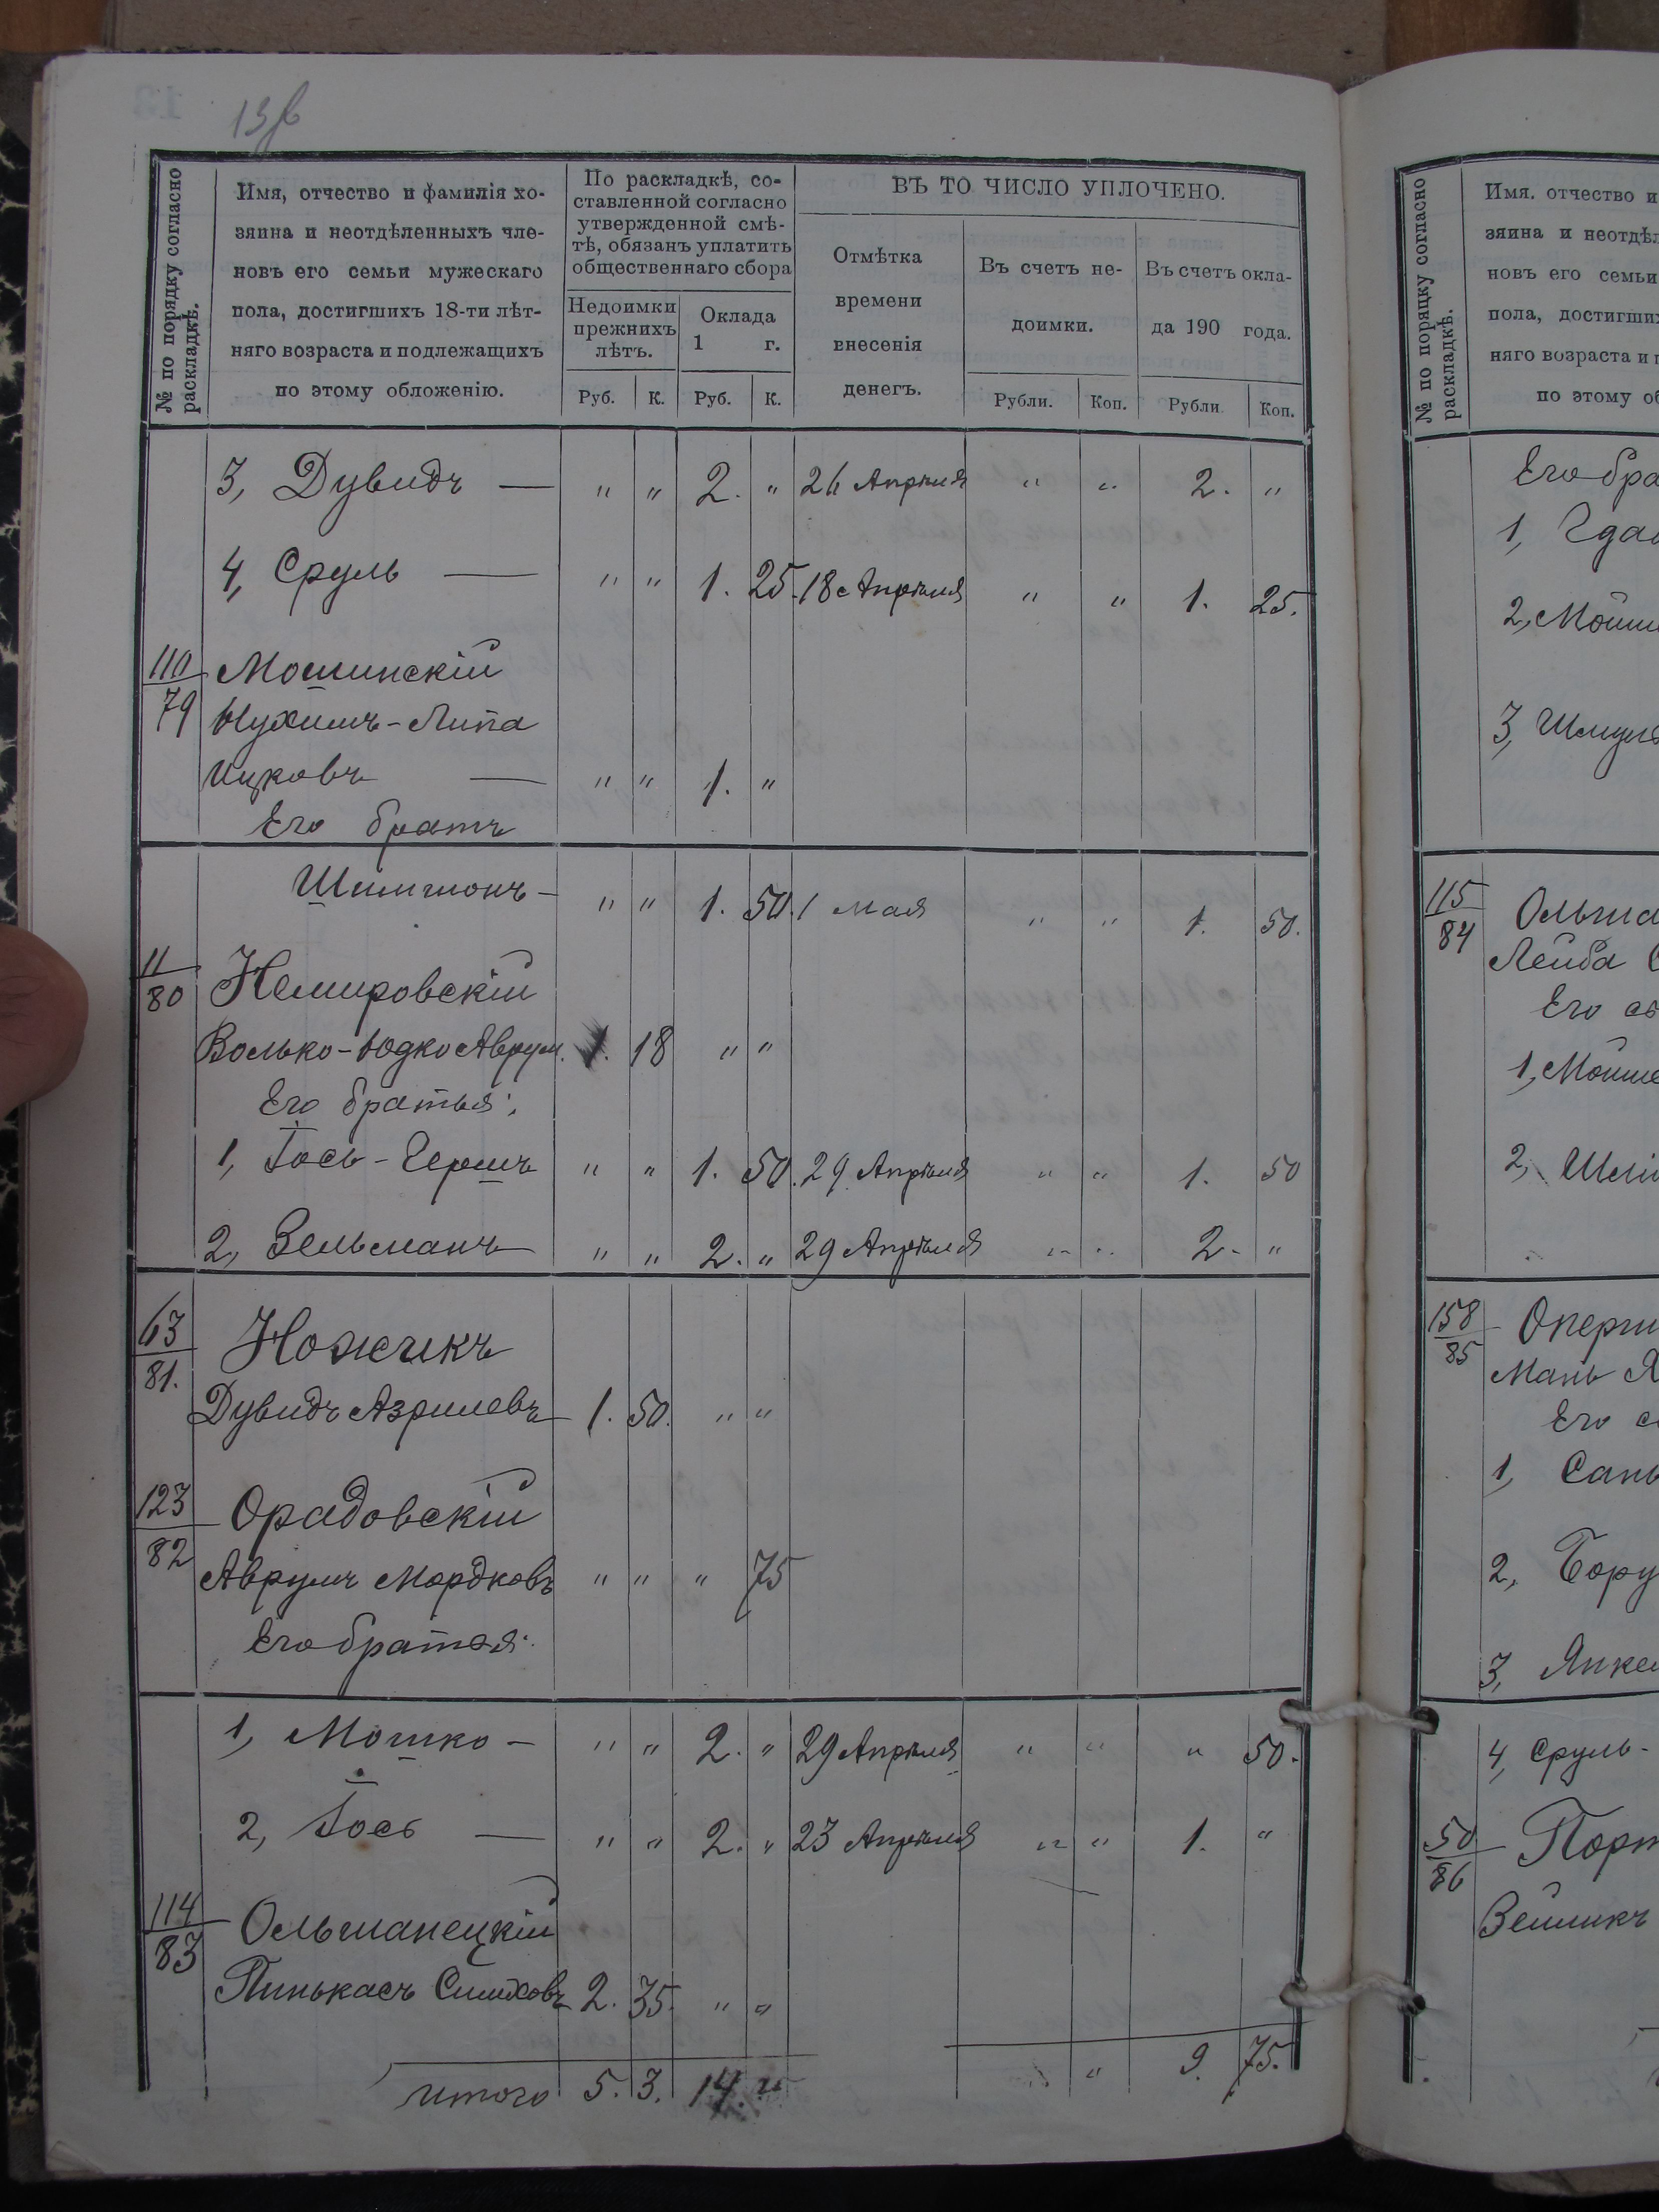 13б
№ по порядку согласно раскладкѣ.
Имя, отчество и фамилія хо-
зяина и неотдѣленныхъ чле-
новъ его семьи мужескаго
пола, достигшихъ 18-ти лѣт-
няго возраста и подлежащихъ
по этому обложенію.
По раскладкѣ, со-
ставленной согласно
утвержденной смѣ-
тѣ, обязанъ уплатить
общественнаго сбора
Недоимки
прежнихъ
лѣтъ.
Оклада
1 г.
Руб. К. Руб. К.
ВЪ ТО ЧИСЛО УПЛОЧЕНО.
Отмѣтка
времени
внесенія
денегъ.
Въ счетъ не-
доимки.
Въ счетъ окла-
да 190 года.
Рубли. Коп. Рубли Коп.
3, Дувидъ — " " 2. " 26 Апрѣля " " 2. "
4, Сруль — " " 1. 25. 18 Апрѣля " " 1. 25.
110/79 Мошинскій
Нухимъ-Липа
Ицковъ — " " 1. "
Его братъ
Шимшонъ — " " 1. 50. 1 мая " " 1. 50.
11/80 Немировскій
Волько-Юдко Аврум. 1. 18 " "
Его братья:
1, Іось-Гершъ " " 1. 50. 29 Апрѣля " " 1. 50
2, Зельманъ " " 2. " 29 Апрѣля " " 2- "
63/81. Ножикъ
Дувидъ Азрилевъ 1. 50. " "
123/82 Орадовскій
Аврумъ Мордковъ " " " 75
Его братья:
1, Мошко — " " 2. " 29 Апрѣля " " " 50.
2, Іось — " " 2. " 23 Апрѣля " " 1. "
114/83 Ольшанецкій
Пинькасъ Симховъ 2. 35. " "
итого 5. 3. 14. " " " 9. 75.
№ по порядку согласно раскладкѣ.
Имя. отчество и
зяина и неотдѣл
новъ его семьи
пола, достигши
няго возраста и п
по этому об
Его бра
1, Гдал
2, Мошк
3, Шмуль
115/84 Ольша
Лейба
Его с
1, Мошк
2, Шлі
158/85
Мань Я
Его с
1, Сань
2, Бору
3, Янкел
4, Сруль-
50/86 Порт